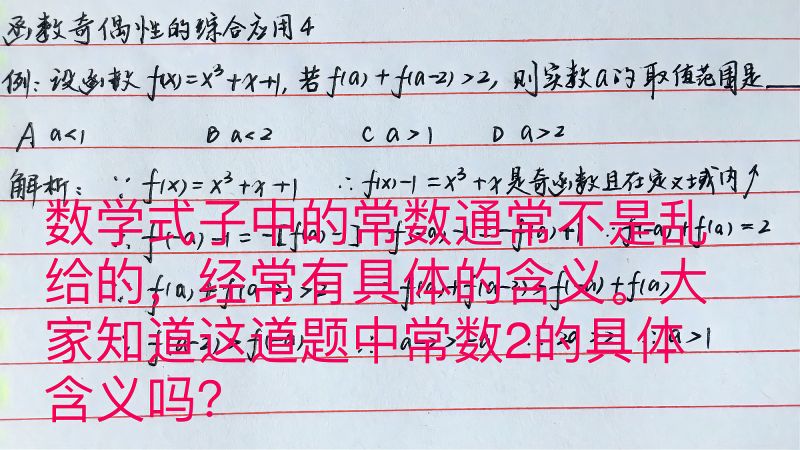 函数奇偶性的综合应用4
例:设函数 f(x)=x³+x+1, 若 f(a)+f(a-2)>2, 则实数a的取值范围是___
A a<1 B a<2 C a>1 D a>2
解析: ∵ f(x)=x³+x+1 ∴ f(x)-1=x³+x是奇函数且在定义域内↑
数学式子中的常数通常不是乱
∴ f(-a)-1=-[f(a)-1] f(-a)-1=-f(a)+1 ∴ f(-a)+f(a)=2
给的,经常有具体的含义。大
f(a)+f(a-2)>2 f(a)+f(a-2)>f(-a)+f(a)
家知道这道题中常数2的具体
f(a-2)>f(-a) ∴ a-2>-a ∴ 2a>2 ∴ a>1
含义吗?